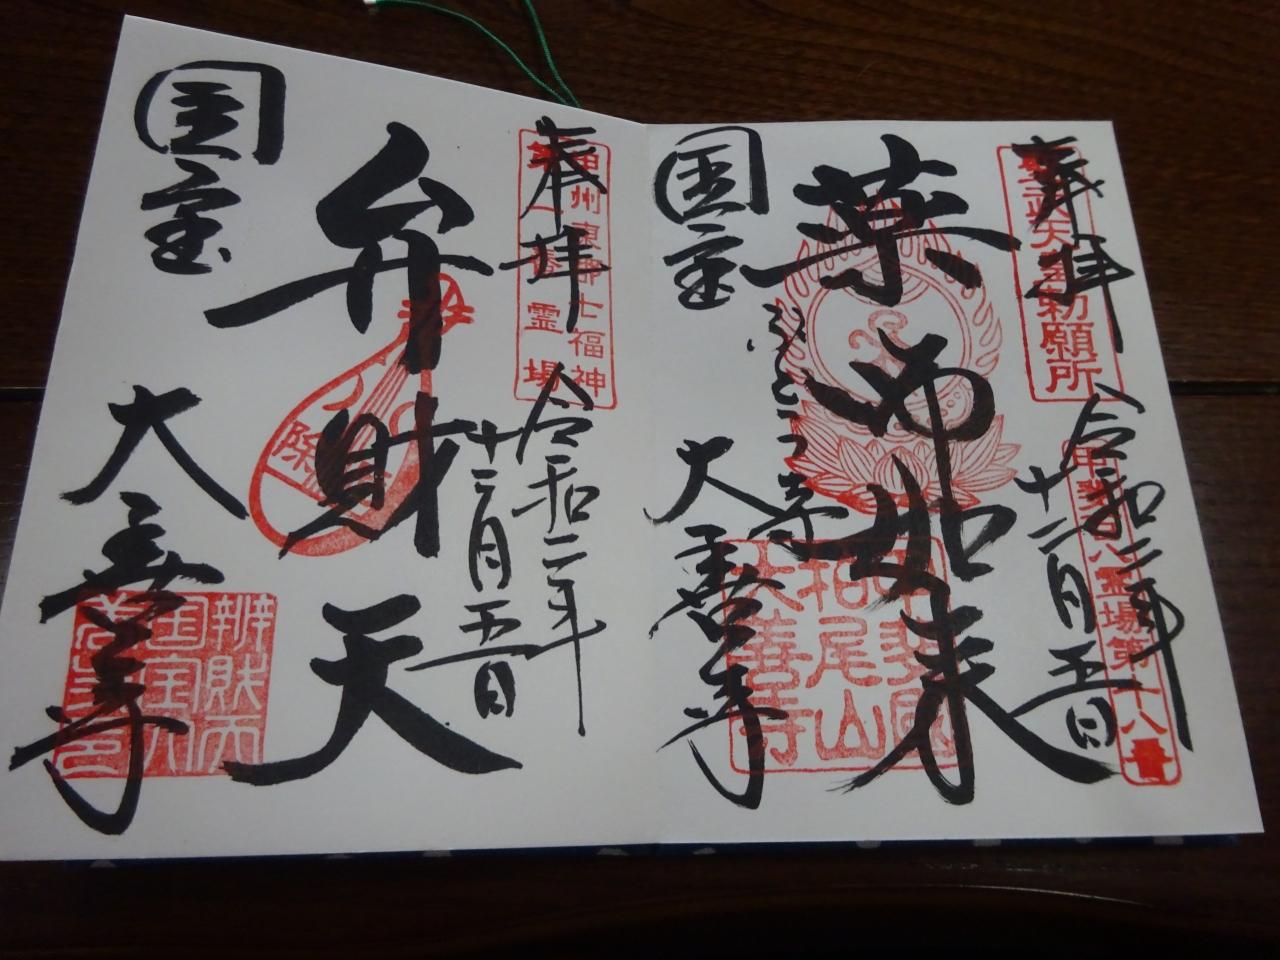 奉拝
聖武天皇勅願所
令和二年
十二月五日
霊場第十八番
薬師如来
国宝
ぶどう寺
大善寺
甲斐国
柏尾山
大善寺
奉拝
甲州東郡七福神
霊場
令和二年
十二月五日
弁財天
国宝
大善寺
辨財天
国宝